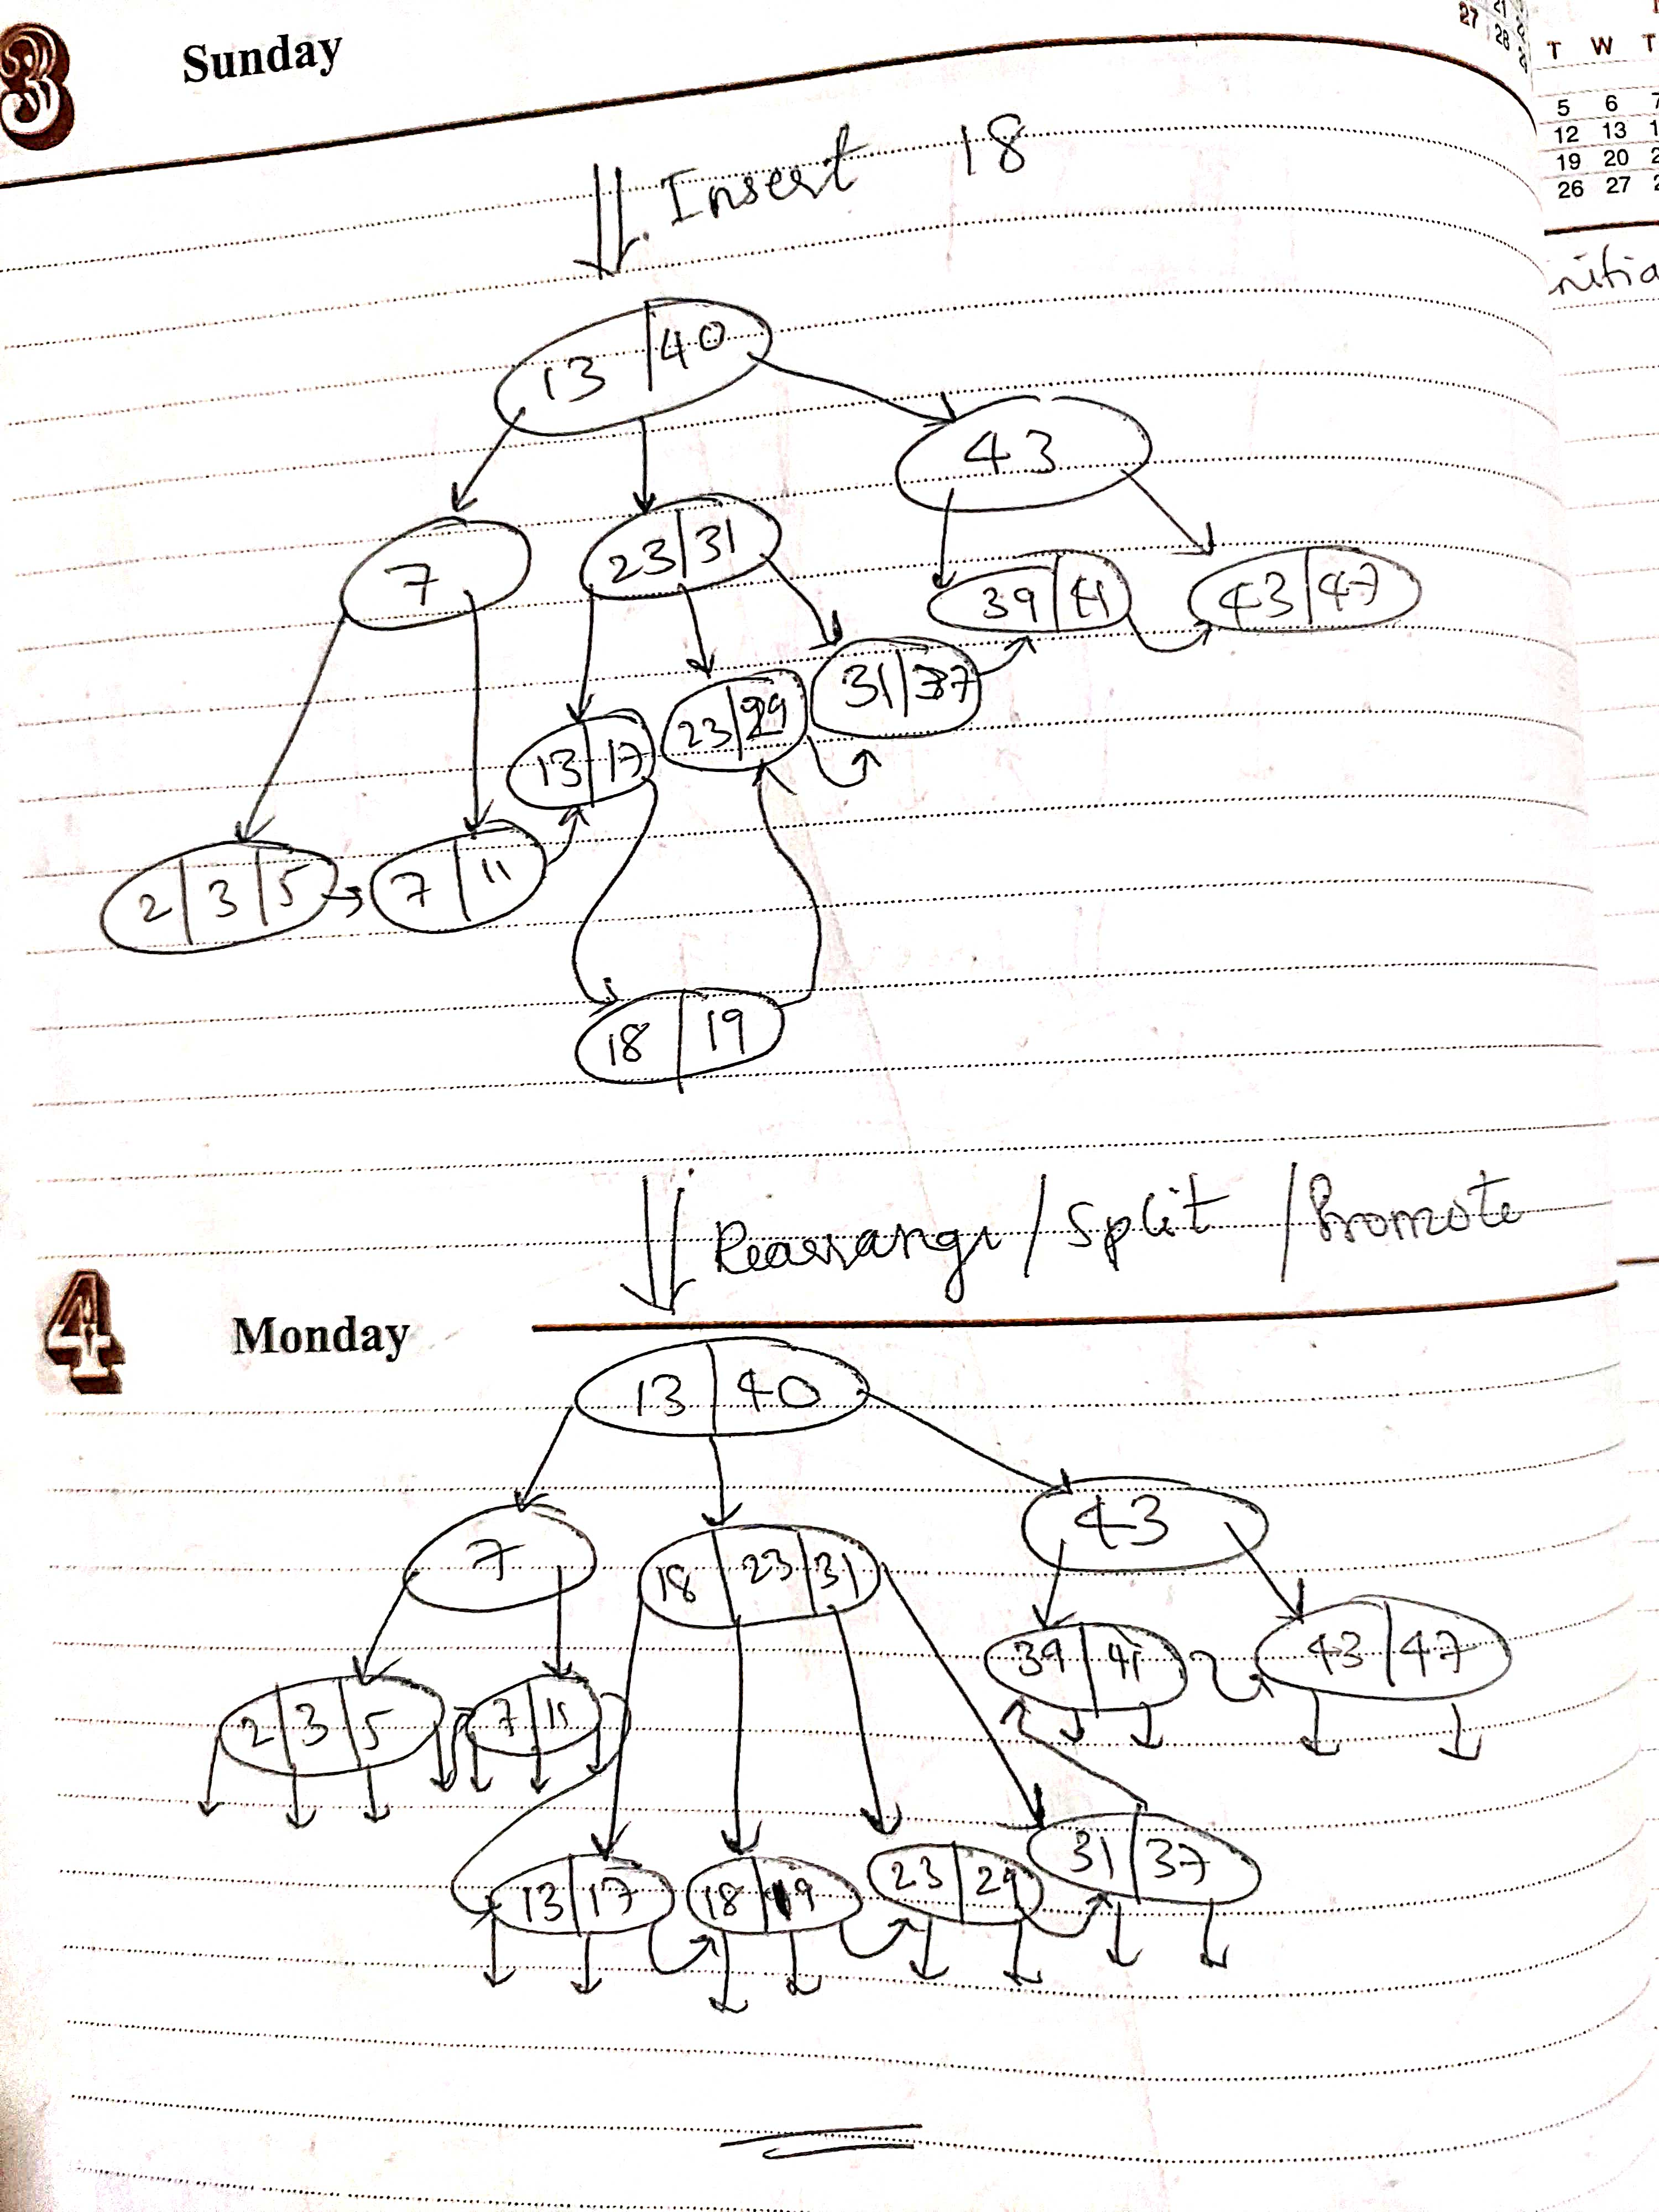 3 Sunday
27 21
28
T W T
5 6 7
12 13 1
19 20 2
26 27 2
nitia
Insert 18
13 | 40
43
7
23 | 31
39 | 41
43 | 47
31 | 37
23 | 29
13 | 17
2 | 3 | 5
7 | 11
18 | 19
Rearrange / Split / Promote
4 Monday
13 | 40
7
18 | 23 | 31
43
39 | 41
43 | 47
2 | 3 | 5
7 | 11
13 | 17
18 | 19
23 | 29
31 | 37